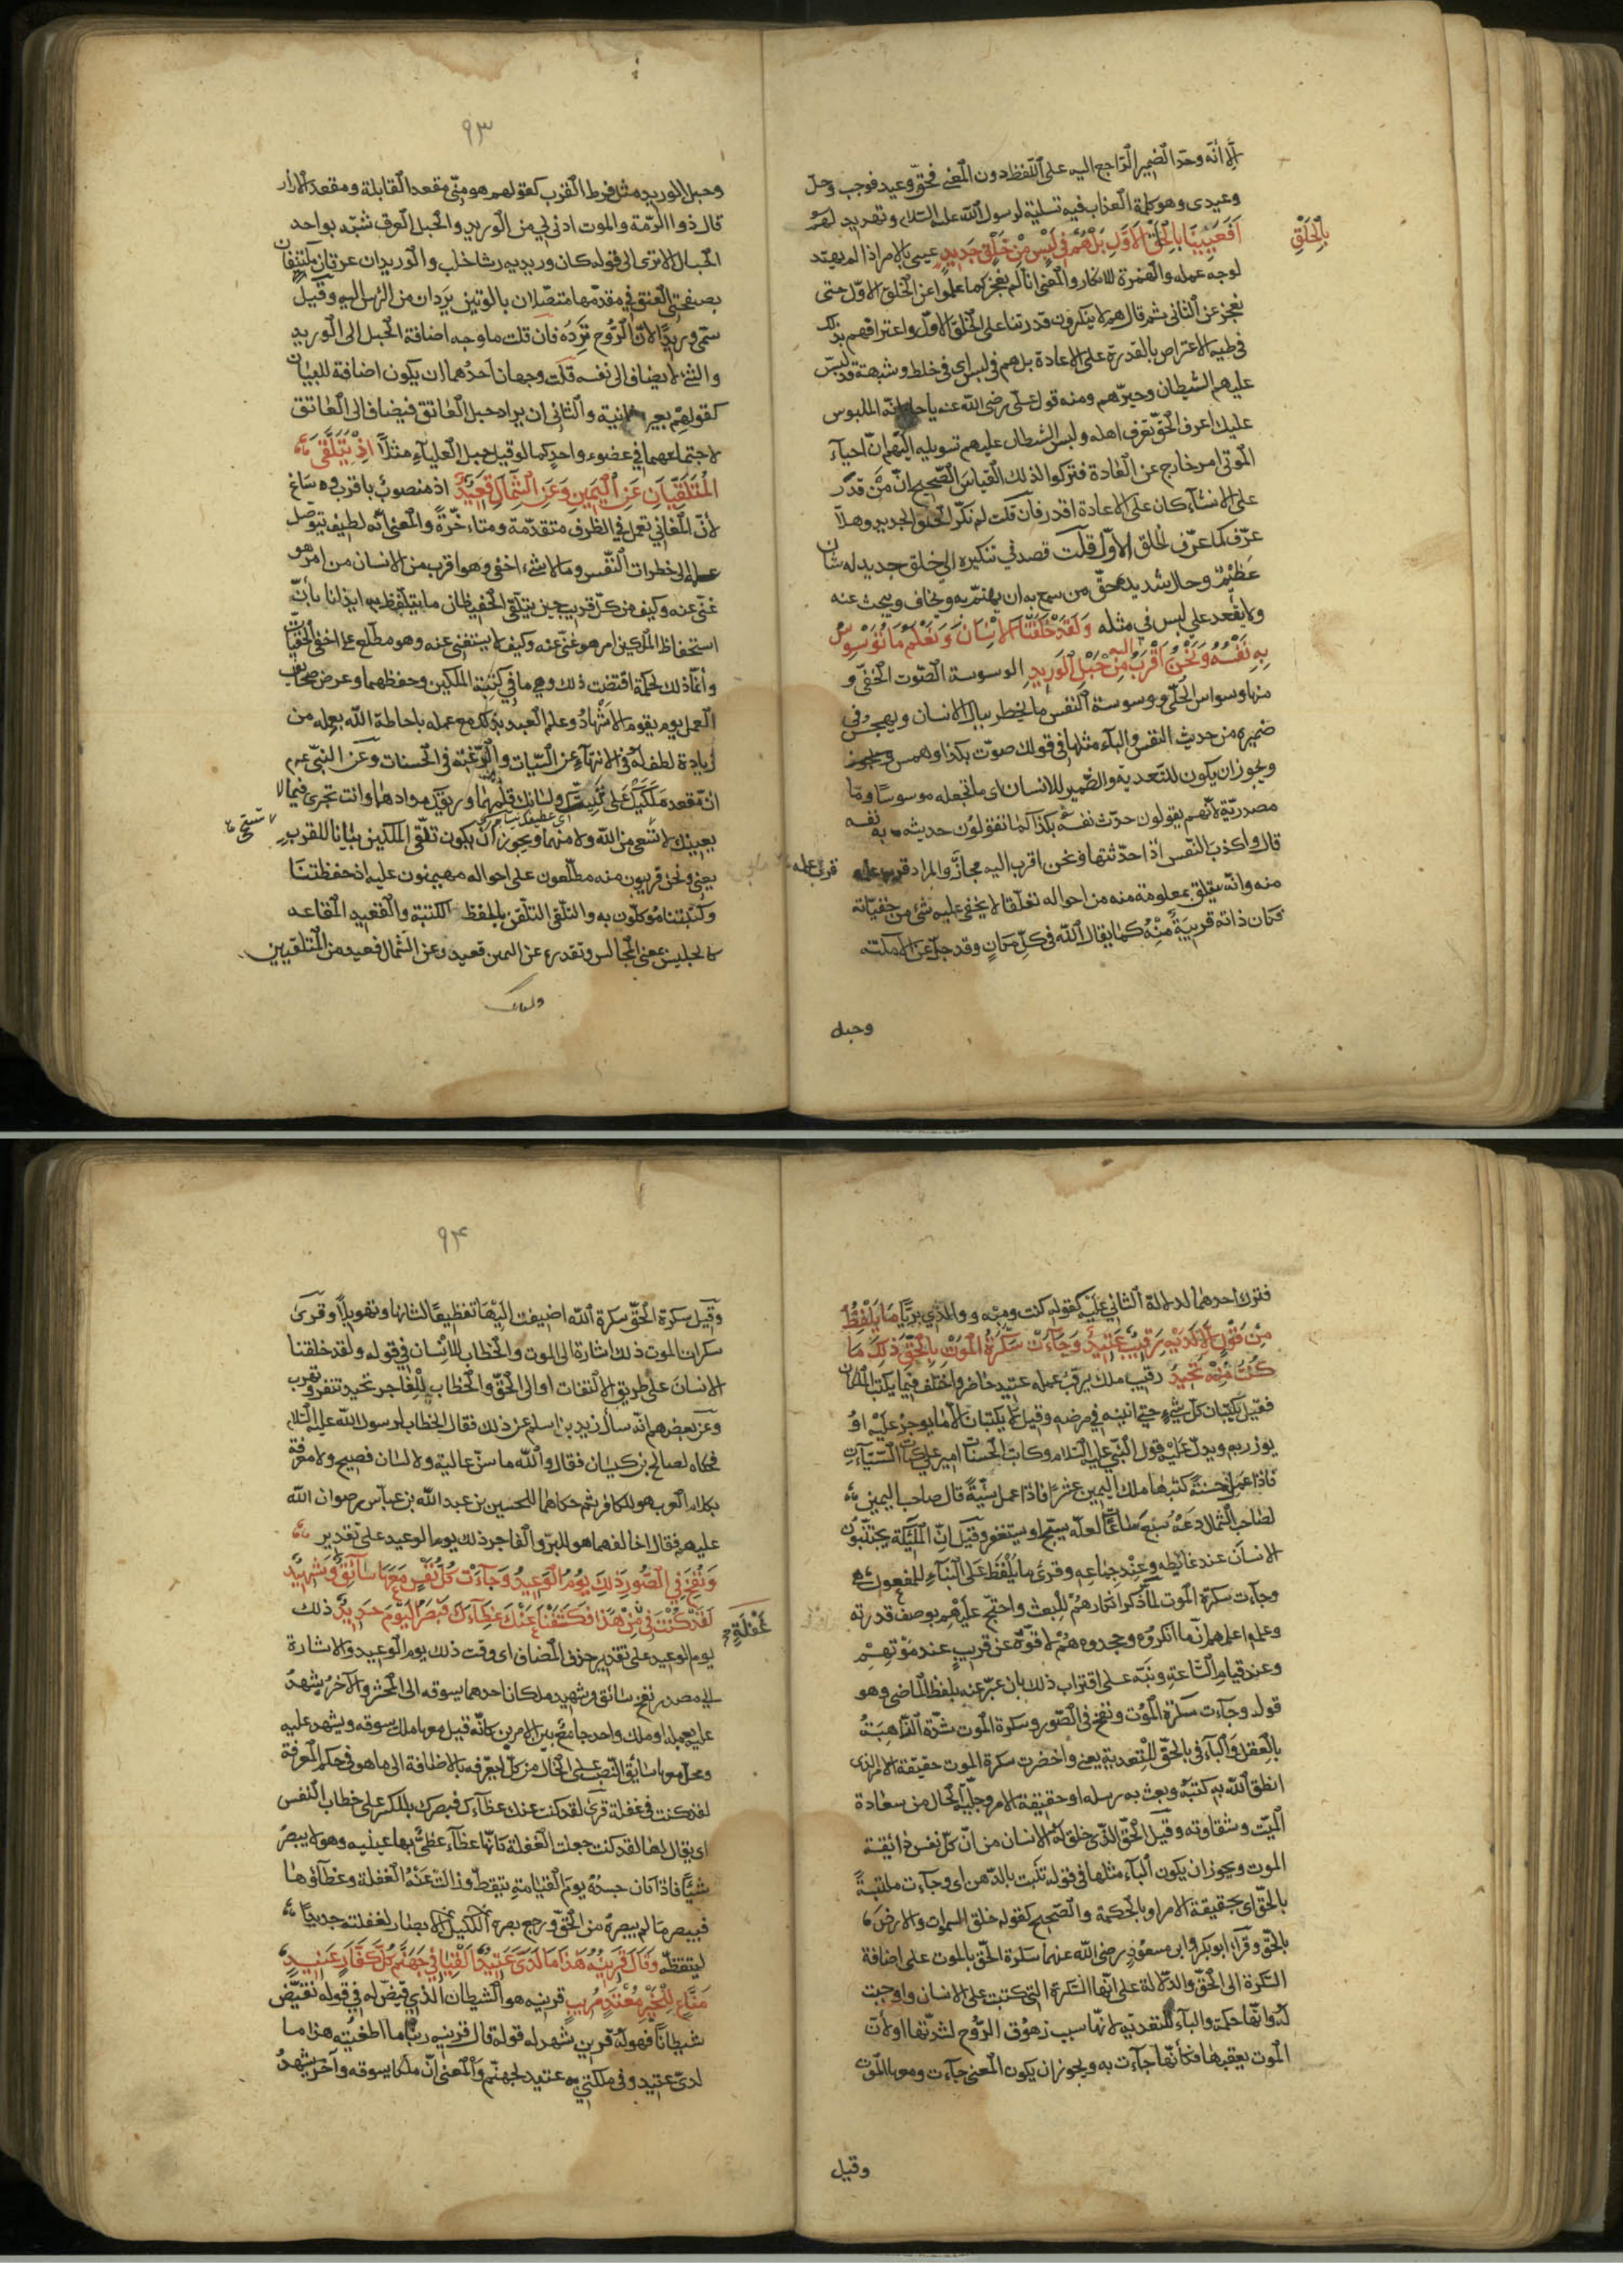 الا أنه وحد الضمير الراجع اليه على اللفظ دون المعنى فحق وعيد فوجب وحل
وعيدى وهو كلمة العذاب فيه تسلية لرسول الله عليه السلام وتهديد لهم
أفعيينا بالخلق الاول بل هم في لبس من خلق جديد عيي بالامر اذا لم يهتد
بالخلق
لوجه عمله والهمزة للانكار والمعنى انا لم نعجز كما علموا عن الخلق الاول حتى
نعجز عن الثاني ثم قال هم لا ينكرون قدرتنا على الخلق الاول واعترافهم بذلك
في طيه الاعتراف بالقدرة على الاعادة بل هم في لبس اى في خلط وشبهة قد لبس
عليهم الشيطان وحيرهم ومنه قول على رضى الله عنه يا حار انه الملبوس
عليك اعرف الحق تعرف اهله ولبس الشيطان عليهم تسويله اليهم ان احياء
الموتى امر خارج عن العادة فتركوا لذلك القياس الصحيح ان من قدر
على الانشاء كان على الاعادة اقدر فان قلت لم نكر الخلق الجديد وهلا
عرف كما عرف الخلق الاول قلت قصد في تنكيره الى خلق جديد له شان
عظيم وحال شديد حق من سمع به ان يهتم به ويخاف ويبحث عنه
ولا يقعد على لبس في مثله ولقد خلقنا الانسان ونعلم ما توسوس
به نفسه ونحن أقرب اليه من حبل الوريد الوسوسة الصوت الخفي و
منها وسواس الحلي ووسوسة النفس ما يخطر ببال الانسان ويهجس في
ضميره من حديث النفس والباء مثلها في قولك صوت بكذا وهمس
ويجوز ان يكون للتعدية والضمير للانسان اى ما تجعله موسوسا وما
مصدرية لانهم يقولون حدث نفسه بكذا كما تقولون حديثه به نفسه
قال واكذب النفس اذا حدثتها ونحن اقرب اليه مجاز والمراد قرب علمه
منه وانه يتعلق بمعلومه منه من احواله تعلقا لا يخفى عليه شئ من خفياته
فكان ذاته قريبة منه كما يقال الله في كل مكان وقد جل عن الامكنة
وحبل
٩٣
وحبل الوريد مثل فرط القرب كقولهم هو منى مقعد القابلة ومقعد الازار
قال ذو الرمة والموت ادنى لي من الوريد والحبل العرق شبه بواحد
الحبال الا ترى الى قوله كان وريديه رشاء خلب والوريدان عرقان مكتنفان
بصفحتي العنق في مقدمها متصلان بالوتين يردان من الراس اليه وقيل
سمى وريدا لان الروح ترده فان قلت ما وجه اضافة الحبل الى الوريد
والشئ لا يضاف الى نفسه قلت وجهان احدهما ان يكون اضافة للبيان
كقولهم بعير سانية والثاني ان يراد حبل العاتق فيضاف الى العاتق
لاجتماعهما في عضو واحد كما لو قيل حبل العلياء مثلا اذ يتلقى
المتلقيان عن اليمين وعن الشمال قعيد اذ منصوب باقرب وساغ
لأن المعاني تعمل في الظرف متقدمة ومتاخرة والمعنى أنه لطيف يتوصل
علمه الى خطرات النفس وما لا شئ اخفى وهو اقرب من الانسان من
غنى عنه وكيف من كل قريب حين يتلقى الحفيظان ما يتلفظ به ايذانا بأن
استحفاظ الملكين امر هو غنى عنه وكيف لا يستغنى عنه وهو مطلع على اخفى الخفيات
وانما ذلك لحكمة اقتضت ذلك وهى ما في كتبة الملكين وحفظهما وعرض صحائف
العمل يوم يقوم الاشهاد وعلم العبد بذلك مع علمه باحاطة الله بعمله من
زيادة لطف له في الانتهاء عن السيات والرغبة في الحسنات وعن النبى عم
ان مقعد ملكيك على ثنيتيك ولسانك قلمهما وريقك مدادهما وانت تجرى فيما لا
يعنيك لا تستحى من الله ولا منهما ويجوز ان يكون تلقى الملكين بيانا للقرب
يعنى ونحن قريبون منه مطلعون على احواله مهيمنون عليه اذ حفظتنا
وكتبتنا موكلون به والتلقى التلقن بالحفظ الكتبة والقعيد المقاعد
كالجليس بمعنى المجالس وتقديره عن اليمين قعيد وعن الشمال قعيد من المتلقيين
فترك احدهما لدلالة الثاني عليه كقوله كنت ومنه ووالدي بريا ما يلفظ
من قول الا لديه رقيب عتيد وجاءت سكرة الموت بالحق ذلك ما
كنت منه تحيد رقيب ملك يرقب عمله عتيد حاضر واختلف فيما يكتب الملكان
فقيل يكتبان كل شئ حتى انينه في مرضه وقيل لا يكتبان الا ما يوجر عليه او
يوزر به ويدل عليه قول النبي عليه السلام وكاتب الحسنات امير على كاتب السيآت
فاذا عمل حسنة كتبها ملك اليمين عشرا فاذا عمل سيئة قال صاحب اليمين
لصاحب الشمال دعه سبع ساعات لعله يسبح او يستغفر وقيل ان الملئكة يجتنبون
الانسان عند غائطه وعند جماعه وقرئ ما يلفظ على البناء للمفعول
وجاءت سكرة الموت لما ذكر انكارهم للبعث واحتج عليهم بوصف قدرته
وعلمه اعلمهم ان ما انكروه وجحدوه هم لاقوه عن قريب عند موتهم
وعند قيام الساعة ونبه على اقتراب ذلك بان عبر عنه بلفظ الماضى وهو
قوله وجاءت سكرة الموت ونفخ في الصور وسكرة الموت شدته الذاهبة
بالعقل والباء في بالحق للتعدية يعنى واحضرت سكرة الموت حقيقة الامر الذى
انطق الله به كتبه وبعث به رسله او حقيقة الامر وجلية الحال من سعادة
الميت وشقاوته وقيل الحق الذى خلق له الانسان من ان كل نفس ذائقة
الموت ويجوز ان يكون الباء مثلها في قوله تنبت بالدهن اى وجاءت ملتبسة
بالحق اى بحقيقة الامر او بالحكمة والصحيح كقوله خلق السموات والارض
بالحق وقراء ابو بكر وابن مسعود رضى الله عنهما سكرة الحق بالموت على اضافة
السكرة الى الحق والدلالة على انها السكرة التى كتبت على الانسان واوجبت
له وانها حكمة والباء للتعدية لانها سبب زهوق الروح لشدتها او لأن
الموت يعقبها فكأنها جاءت به ويجوز ان يكون المعنى جاءت ومعها الموت
وقيل
٩٤
وقيل سكرة الحق سكرة الله اضيفت اليه تعظيما لشانها وتهويلا وقرئ
سكرات الموت ذلك اشارة الى الموت والخطاب للانسان في قوله ولقد خلقنا
الانسان على طريق الالتفات او الى الحق والخطاب للفاجر تحيد تنفر وتهرب
وعن بعضهم انه سأل زيد بن اسلم عن ذلك فقال الخطاب لرسول الله عليه السلام
فحكاه لصالح بن كيسان فقال والله ما سن عالية ولا لسان فصيح ولا معرفة
بكلام العرب هو للكافر ثم حكاهما للحسين بن عبد الله بن عباس رضوان الله
عليهم فقال اخالفهما هو للبر والفاجر ذلك يوم الوعيد على تقدير
ونفخ في الصور ذلك يوم الوعيد وجاءت كل نفس معها سائق وشهيد
لقد كنت في من هذا فكشفنا عنك غطاءك فبصرك اليوم حديد ذلك
غفلة
يوم الوعيد على تقدير حذف المضاف اى وقت ذلك يوم الوعيد والاشارة
الى مصدر نفخ سائق وشهيد ملكان احدهما يسوقه الى المحشر والآخر يشهد
عليه بعمله او ملك واحد جامع بين الامرين كانه قيل معها ملك يسوقه ويشهد عليه
ومحل معها سائق النصب على الحال من كل لتعرفه بالاضافة الى ما هو في حكم المعرفة
لقد كنت في غفلة قرئ لقد كنت عنك غطاءك فبصرك بالكسر على خطاب النفس
اى يقال لها لقد كنت جعلت الغفلة كانها غطاء غطى بها عينيه وهو لا يبصر
شيأ فاذا كان يوم القيامة تيقظ وزالت عنه الغفلة وغطاؤها
فيبصر ما لم يبصره من الحق ورجع بصره الكليل الابصار لغفلته حديدا
لتيقظه وقال قرينه هذا ما لدى عتيد القيا في جهنم كل كفار عنيد
مناع للخير معتد مريب قرينه هو الشيطان الذي قيض له في قوله نقيض
شيطانا فهو له قرين شهد له قوله قال قرينه ربنا ما اطغيته هذا ما
لدى عتيد وفي ملكتي عتيد لجهنم والمعنى ان ملكا يسوقه وآخر يشهد